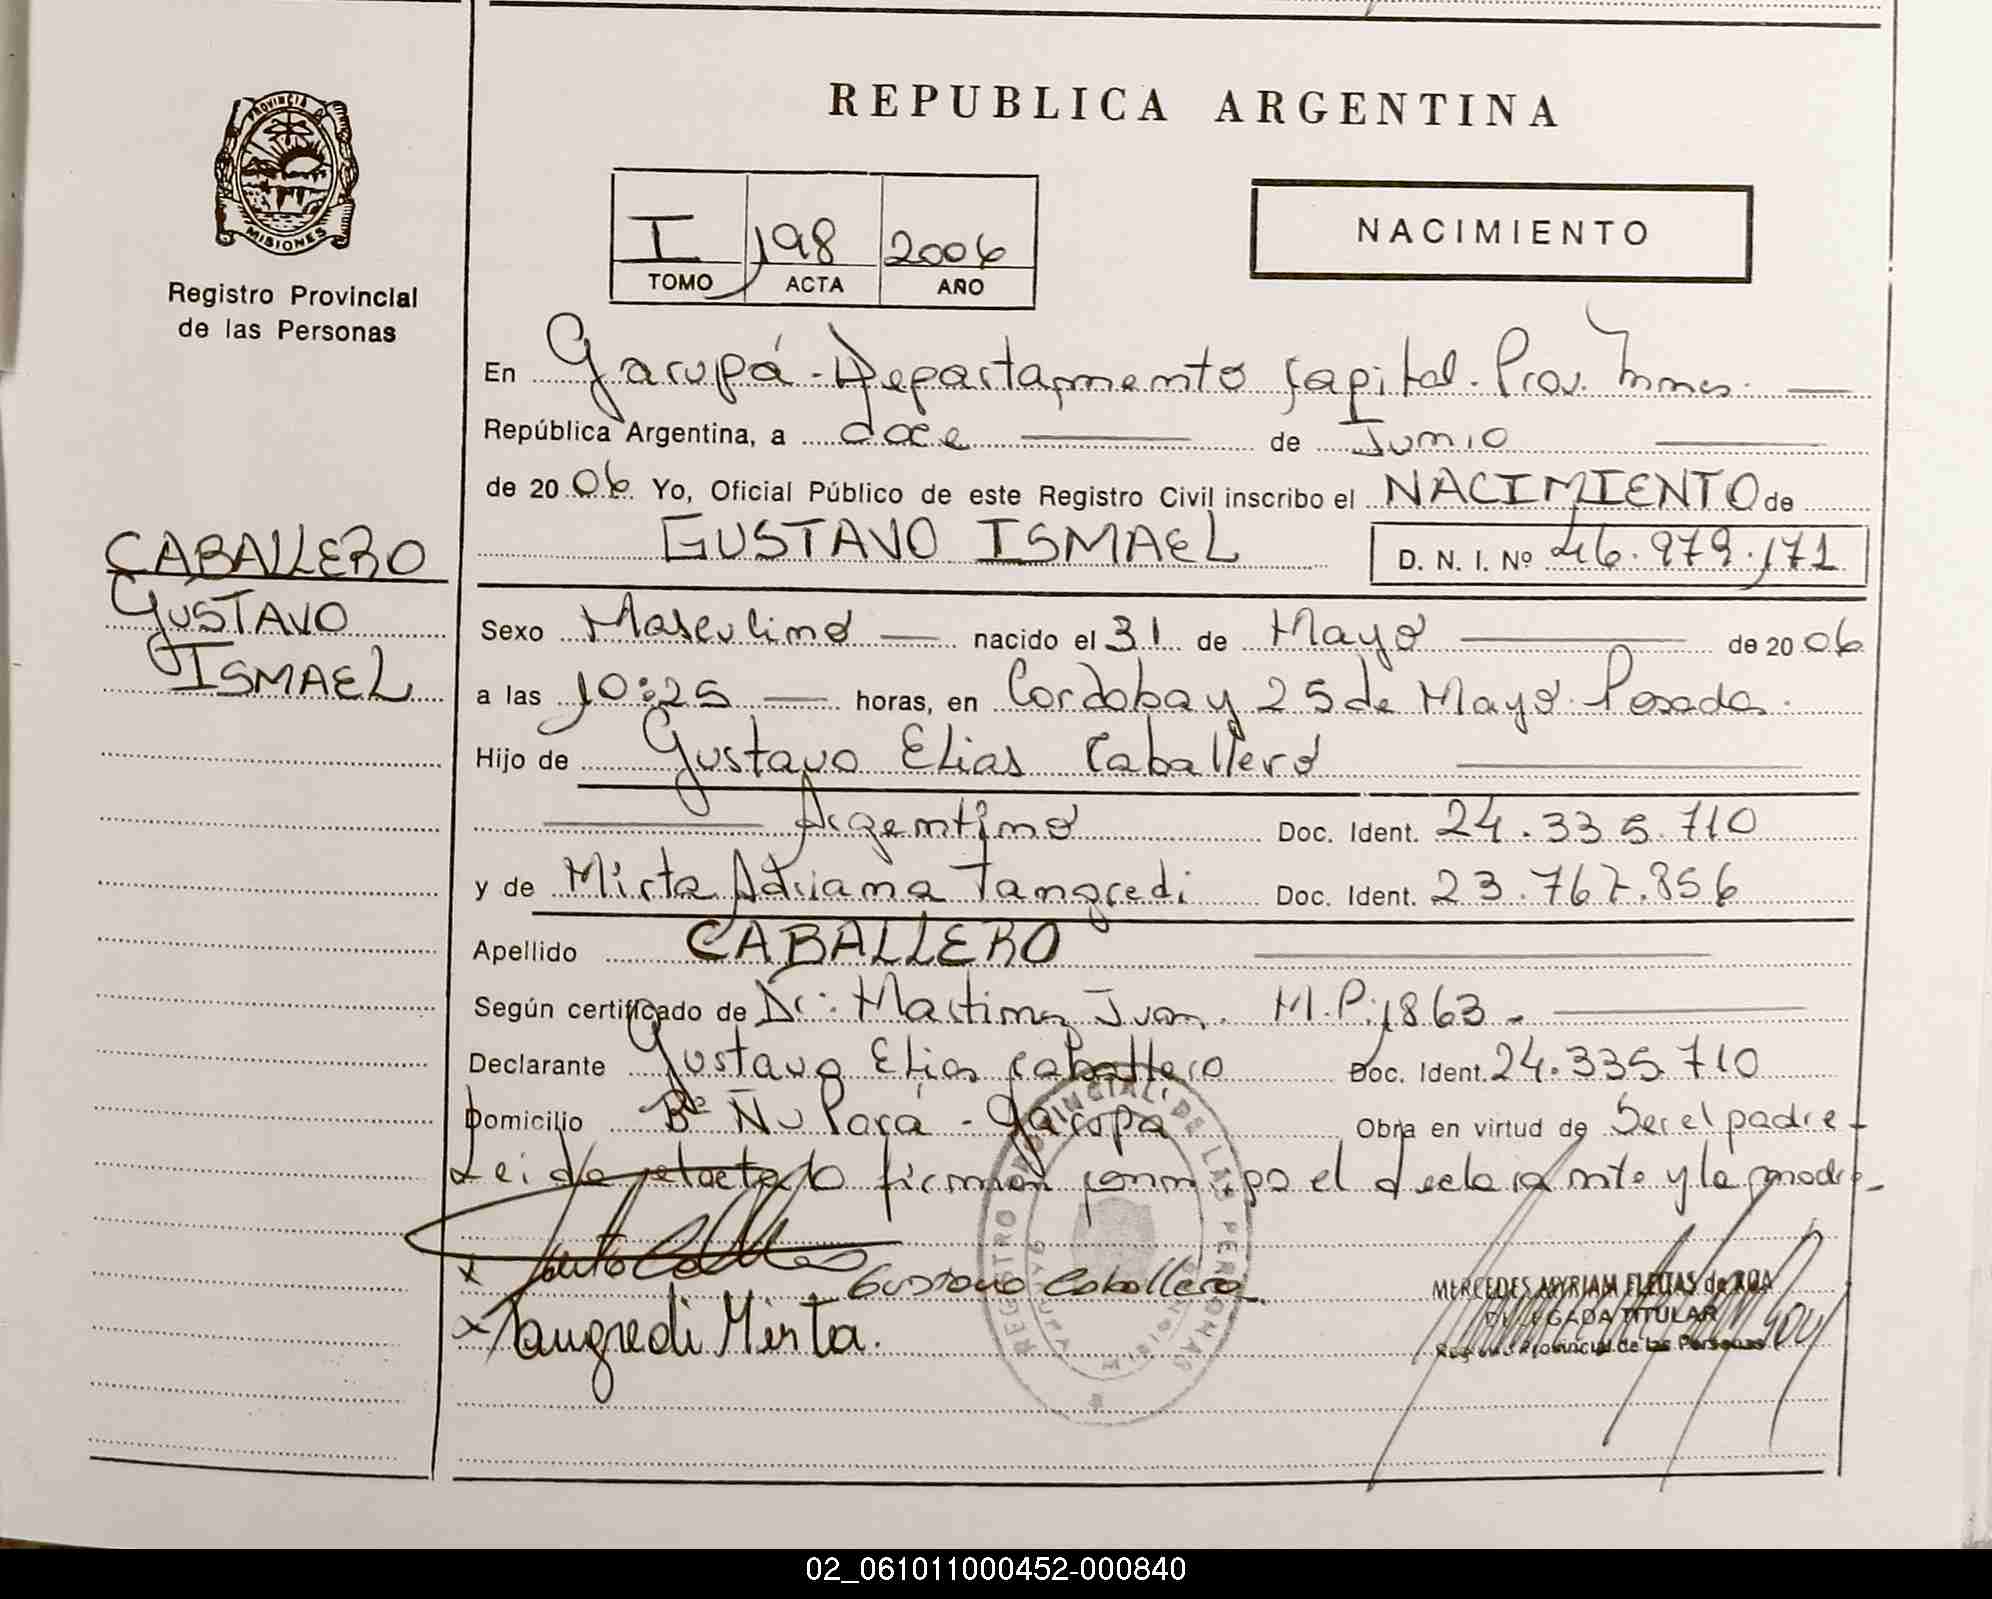 REPUBLICA ARGENTINA
PROVINCIA
MISIONES
Registro Provincial
de las Personas
I 198 2006
TOMO ACTA AÑO
NACIMIENTO
En Garupá - Departamento Capital. Prov. Mnes.
República Argentina, a doce de Junio
de 2006 Yo, Oficial Público de este Registro Civil inscribo el NACIMIENTO de
GUSTAVO ISMAEL D. N. I. Nº 46.979.171
CABALLERO
GUSTAVO
ISMAEL
Sexo Masculino nacido el 31 de Mayo de 2006
a las 10:25 horas, en Cordoba y 25 de Mayo. Posadas.
Hijo de Gustavo Elias Caballero
Argentino Doc. Ident. 24.335.710
y de Mirta Adriana Tangredi Doc. Ident. 23.767.856
Apellido CABALLERO
Según certificado de Dr: Martinez Juan. M.P. 1863 -
Declarante Gustavo Elias Caballero Doc. Ident. 24.335.710
Domicilio Bº Ñu Porá - Garupa Obra en virtud de Ser el padre -
Leida el acta lo firman conmigo el declarante y la madre -
x Gustavo Caballero
x Tangredi Mirta.
REGISTRO PROVINCIAL DE LAS PERSONAS
MERCEDES MYRIAM FLEITAS de ROA
DELEGADA TITULAR
Registro Provincial de las Personas
02_061011000452-000840